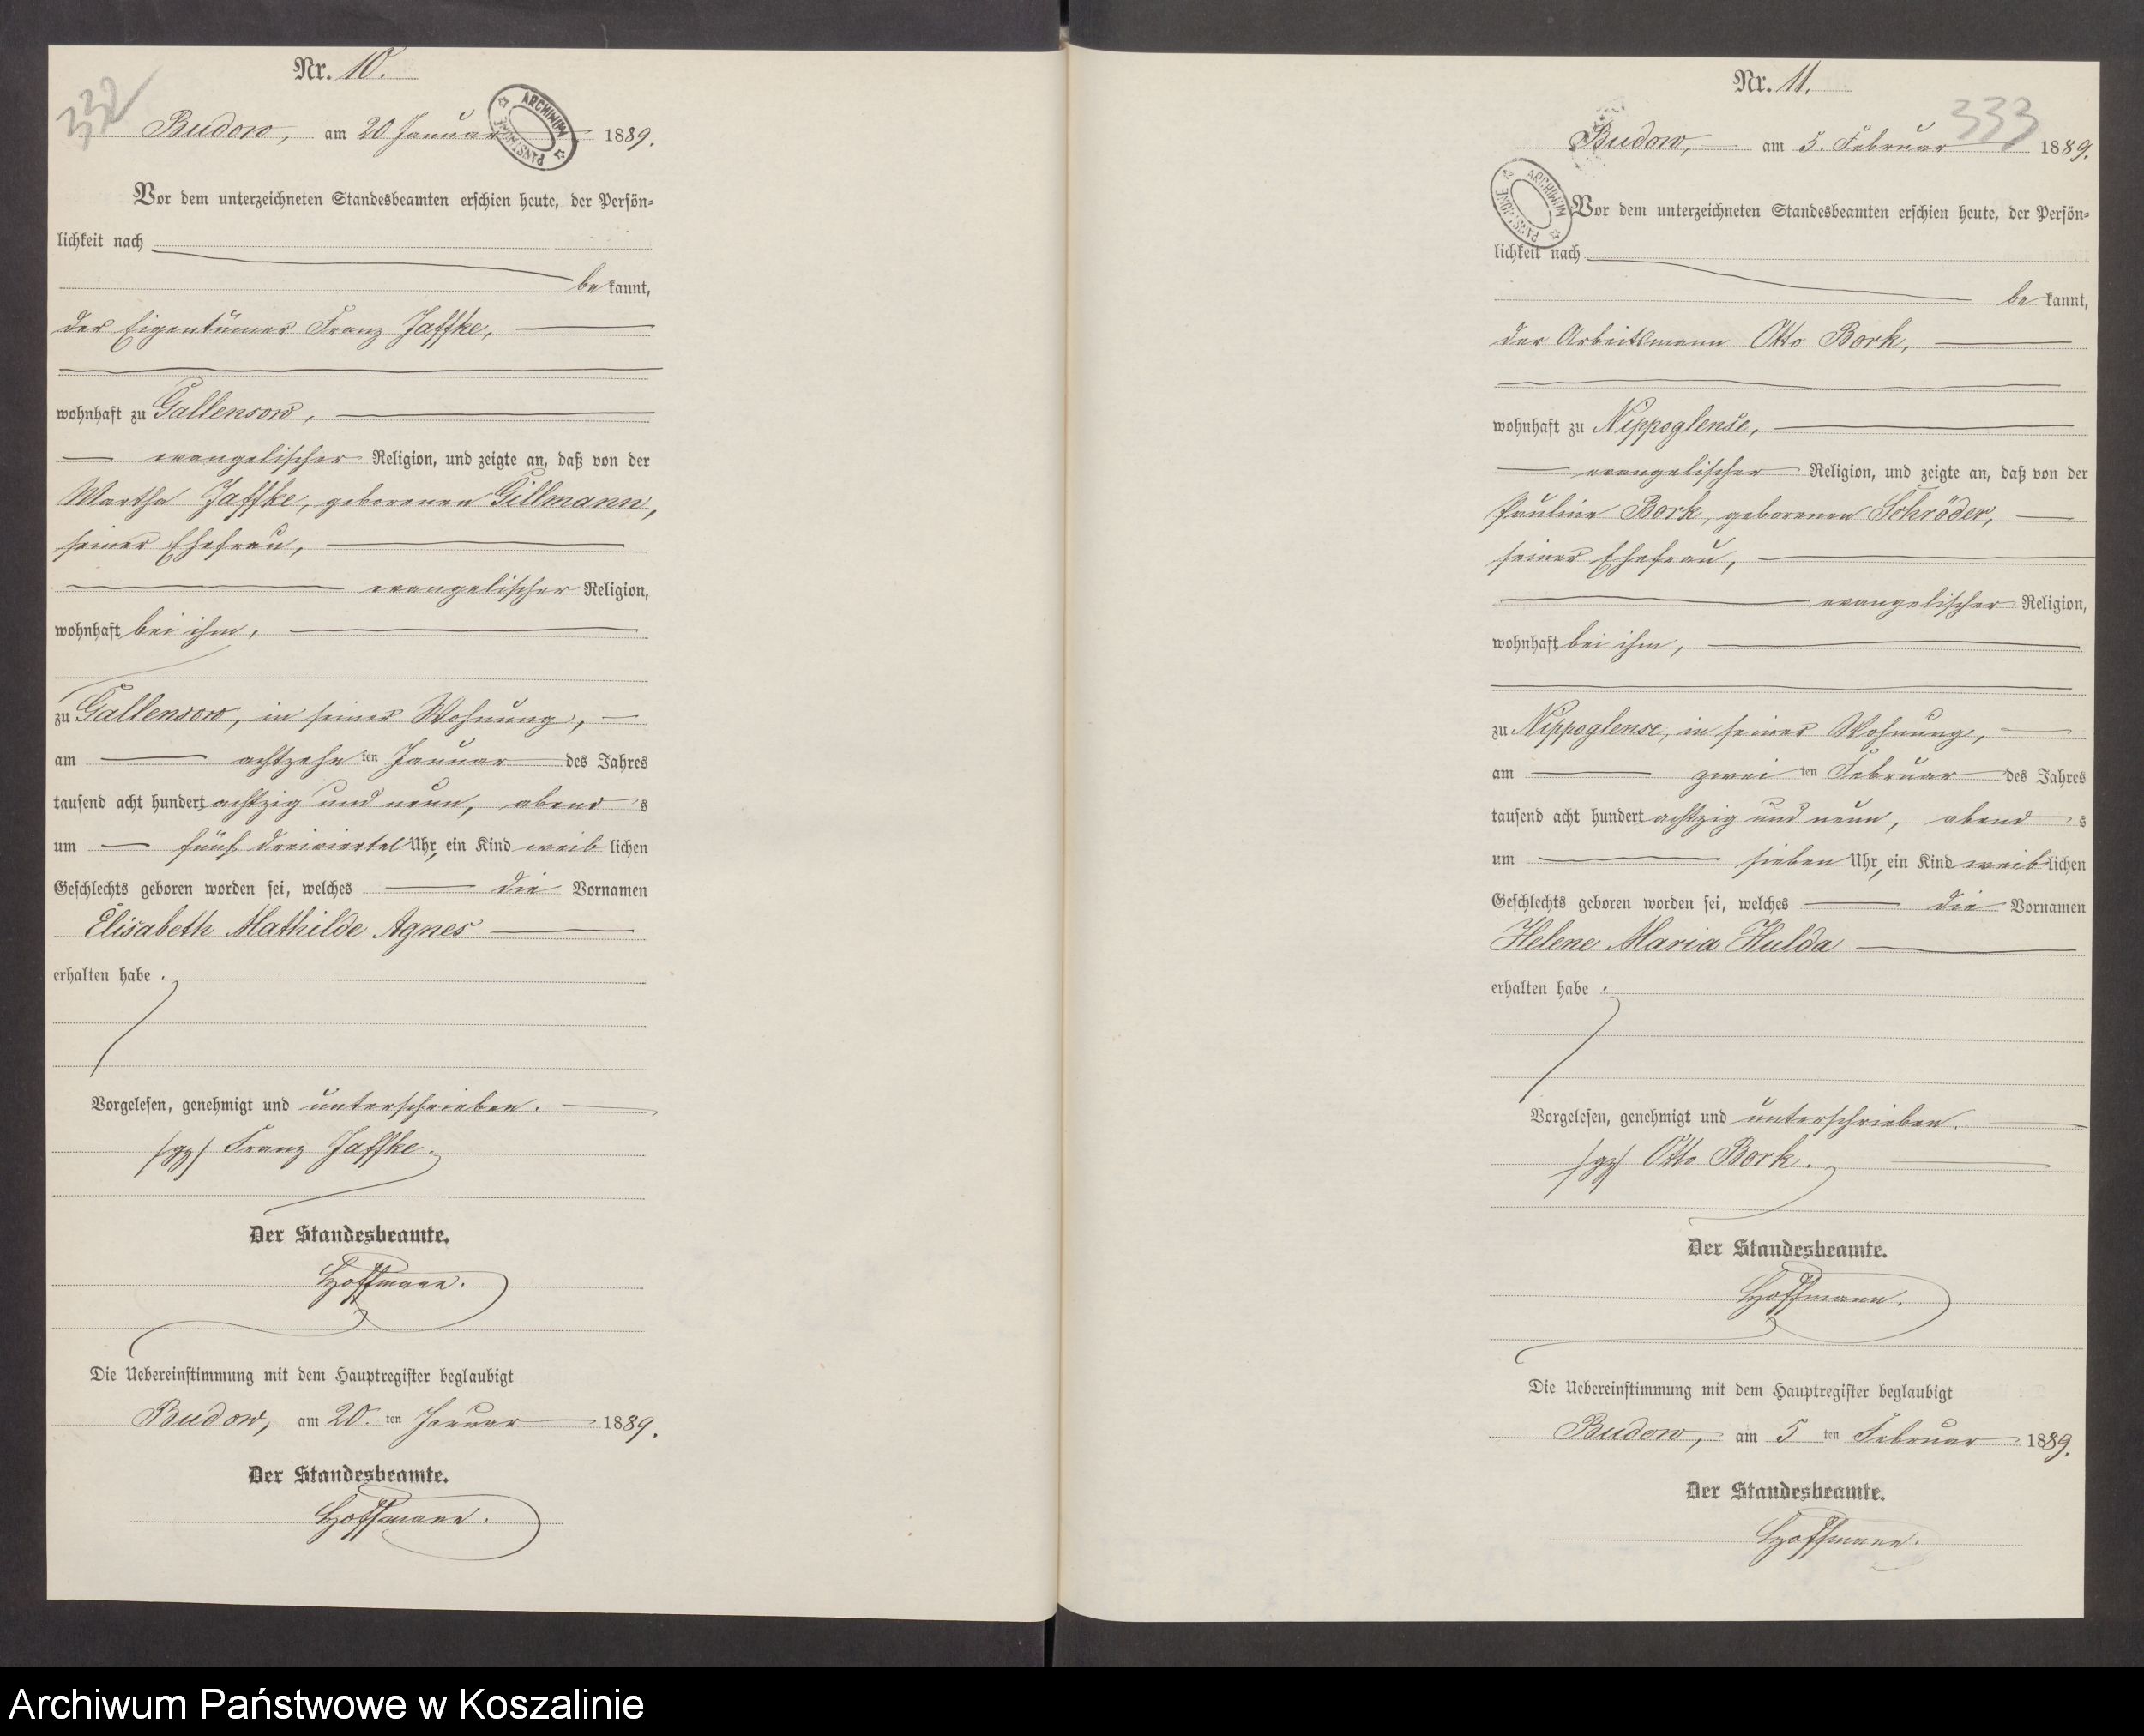 Nr. 10.
332
Budow, am 20 Januar 1889.
ARCHIWUM PAŃSTWOWE
Vor dem unterzeichneten Standesbeamten erschien heute, der Persön-
lichkeit nach
be kannt,
der Eigentümer Franz Jaffke,
wohnhaft zu Gallensow,
evangelischer Religion, und zeigte an, daß von der
Martha Jaffke, geborenen Gillmann,
seiner Ehefrau,
evangelischer Religion,
wohnhaft bei ihm,
zu Gallensow, in seiner Wohnung,
am achtzehn ten Januar des Jahres
tausend acht hundert achtzig und neun, abend s
um fünf dreiviertel Uhr, ein Kind weib lichen
Geschlechts geboren worden sei, welches die Vornamen
Elisabeth Mathilde Agnes
erhalten habe.
Vorgelesen, genehmigt und unterschrieben.
/gz/ Franz Jaffke.
Der Standesbeamte.
Hoffmann.
Die Uebereinstimmung mit dem Hauptregister beglaubigt
Budow, am 20. ten Januar 1889.
Der Standesbeamte.
Hoffmann.
Nr. 11.
333
Budow, am 5. Februar 1889.
ARCHIWUM PAŃSTWOWE
Vor dem unterzeichneten Standesbeamten erschien heute, der Persön-
lichkeit nach
be kannt,
der Arbeitsmann Otto Bork,
wohnhaft zu Nippoglense,
evangelischer Religion, und zeigte an, daß von der
Pauline Bork, geborenen Schröder,
seiner Ehefrau,
evangelischer Religion,
wohnhaft bei ihm,
zu Nippoglense, in seiner Wohnung,
am zwei ten Februar des Jahres
tausend acht hundert achtzig und neun, abend s
um sieben Uhr, ein Kind weib lichen
Geschlechts geboren worden sei, welches die Vornamen
Helene Maria Hulda
erhalten habe.
Vorgelesen, genehmigt und unterschrieben.
/gz/ Otto Bork.
Der Standesbeamte.
Hoffmann.
Die Uebereinstimmung mit dem Hauptregister beglaubigt
Budow, am 5 ten Februar 1889.
Der Standesbeamte.
Hoffmann.
Archiwum Państwowe w Koszalinie